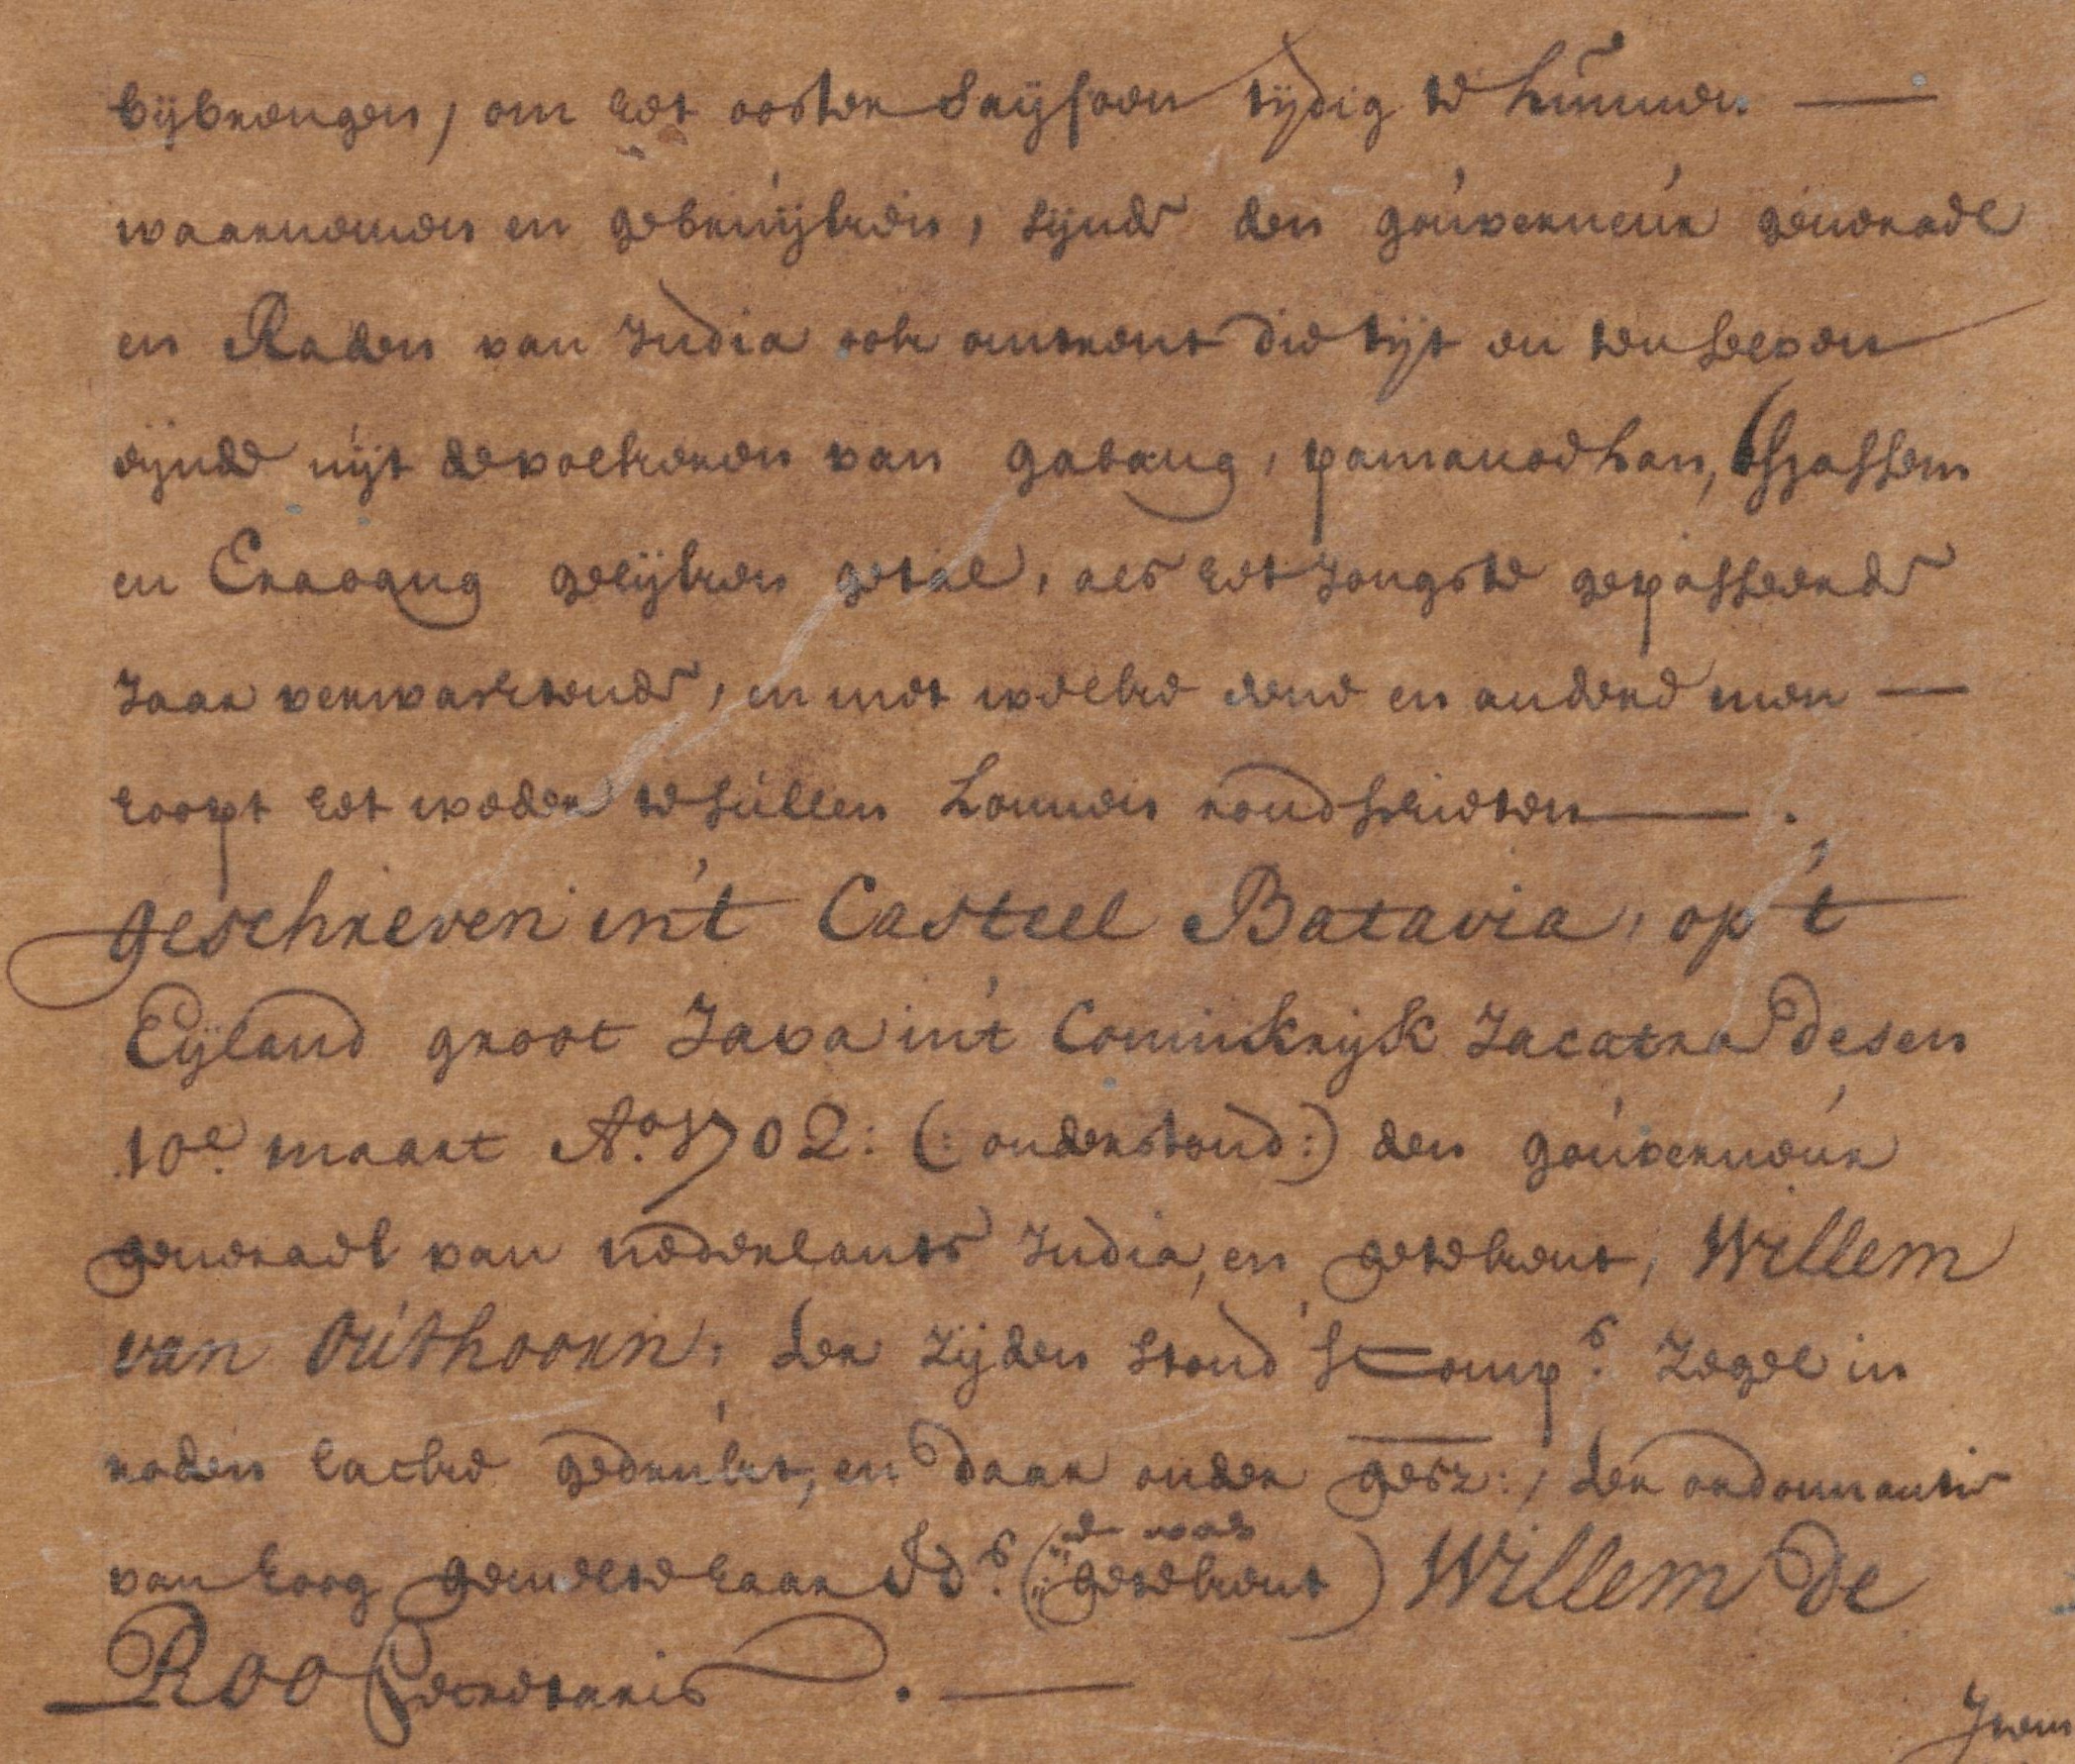 bijbrengen, om het ooster saijsoen tijdig te kunnen
waarnemen en gebruijken, sijnde den gouverneur generael
en Raden van India ook omtrent die tijt en ten selven
eijnde uijt de volkeren van gabang, pamanoekan, Tsjassem
en Crawang gelijken getal, als het Jongste gepasseerde
Jaar verwagtende, en met welke eene en andere men
hoopt het weder te sullen konnen rondschieten.
geschreven in't Casteel Batavia, op 't
Eijland groot Java in't Coninkrijk Jacatra desen
10e. maart Ao. 1702: (: onderstond:) den gouverneur
generael van nederlants India, en getekent, Willem
van Outhoorn, ter zijden stond 's Comps. Zegel in
roden lacke gedrukt, en daar onder gesz:, ter ordonnantie
van hoog gemelte haar Eds. (en was getekent) Willem de
Roo Secretaris.
Item